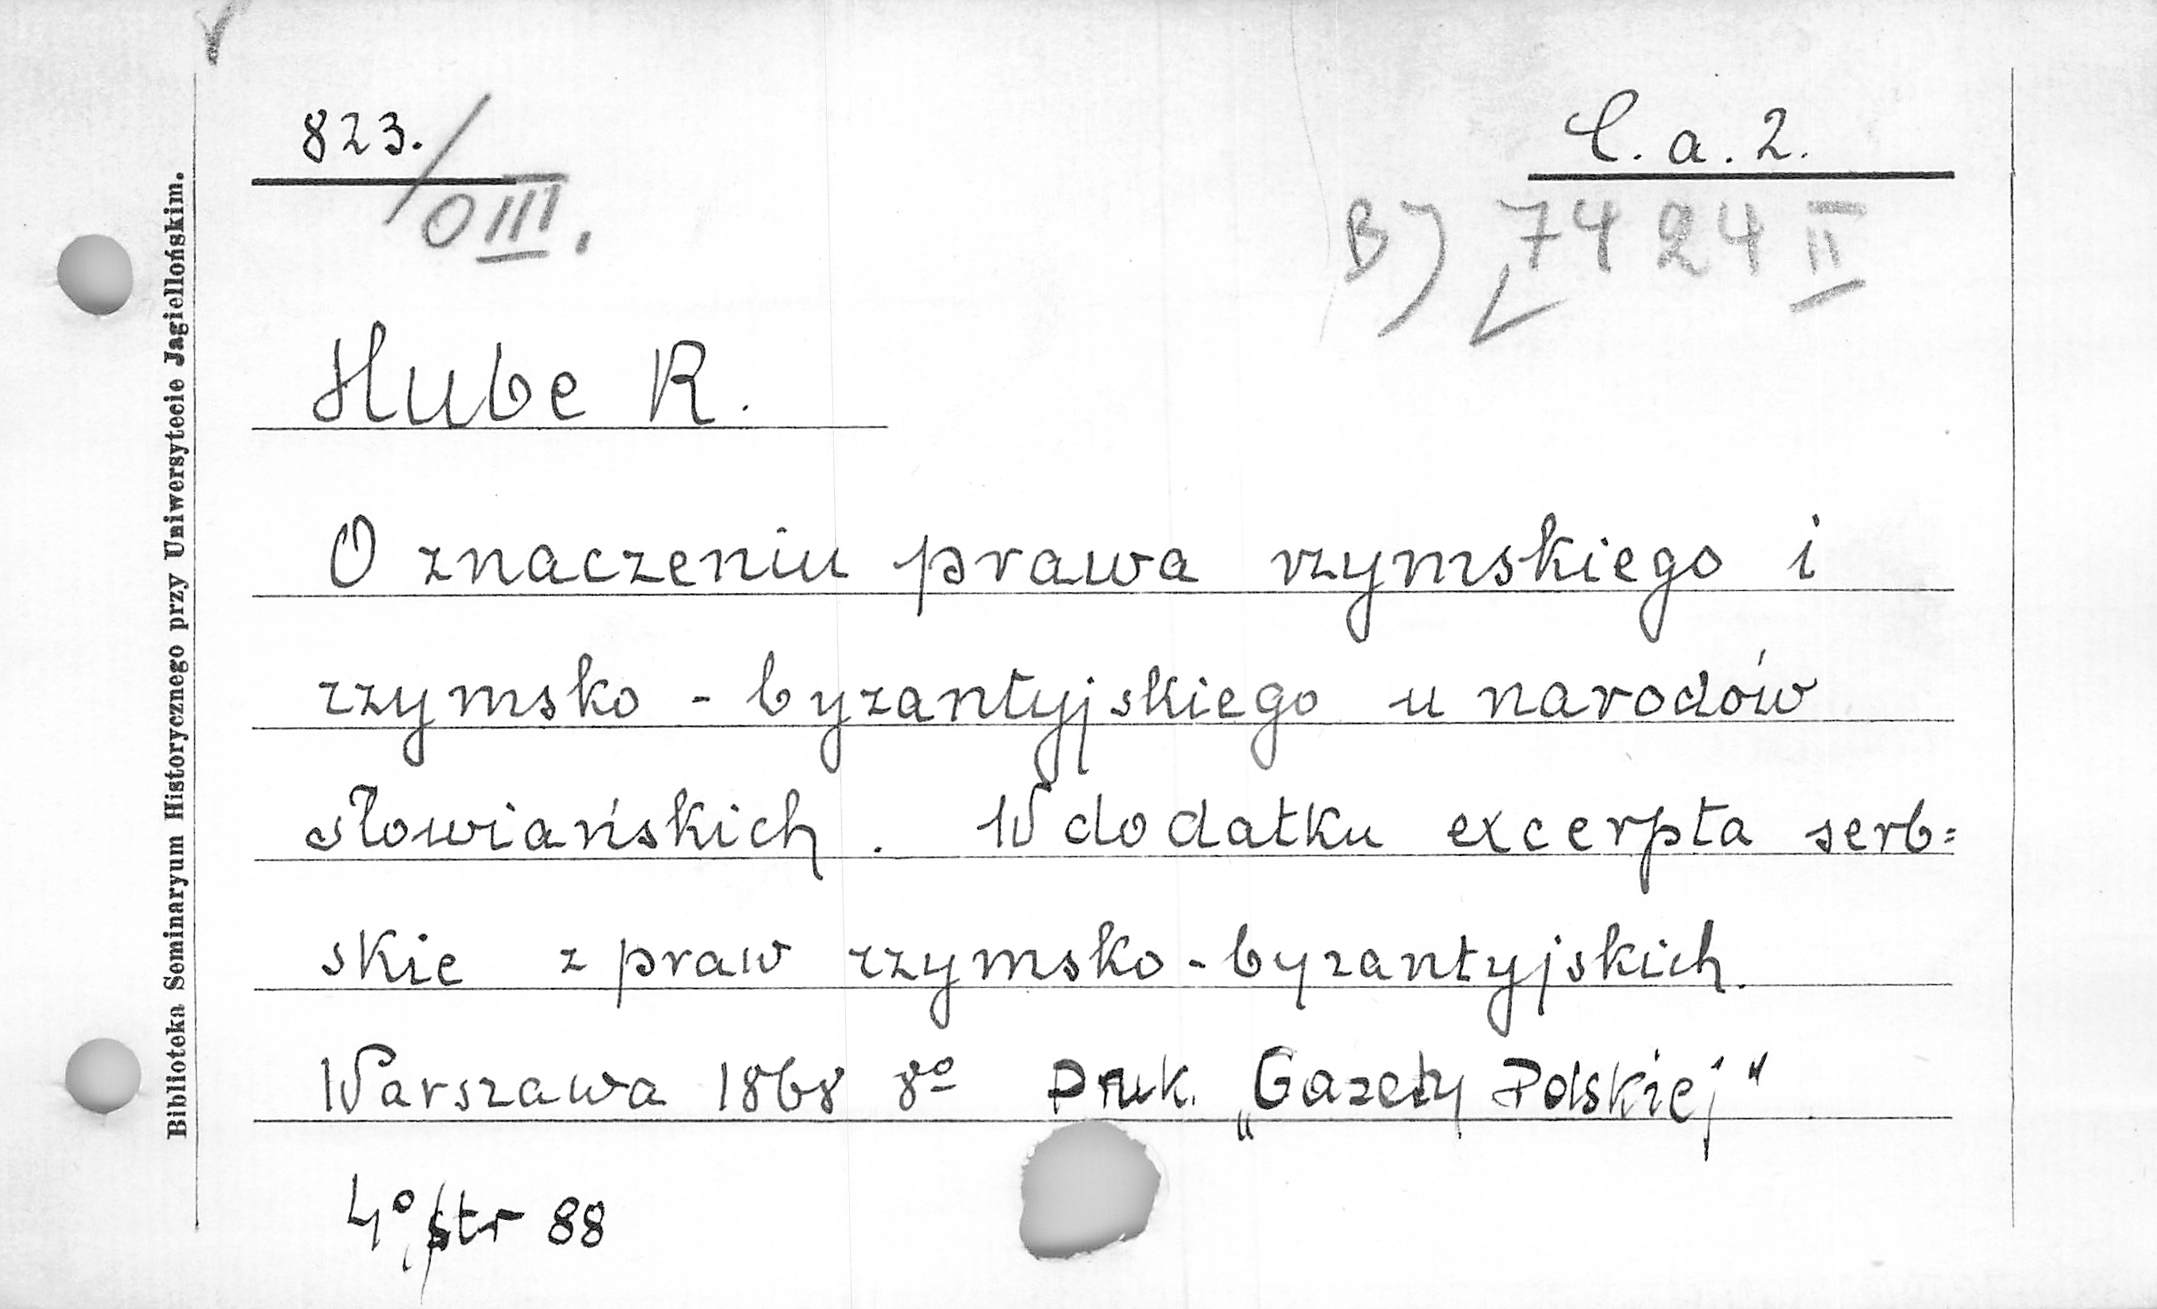 823./OIII.
C. a. 2.
B) 7424 II
Hube R.
O znaczeniu prawa rzymskiego i
rzymsko - byzantyjskiego u narodów
słowiańskich. W dodatku excerpta serb=
skie z praw rzymsko-byzantyjskich.
Warszawa 1868 8º Druk. „Gazety Polskiej"
4º, str 88
Biblioteka Seminaryum Historycznego przy Uniwersytecie Jagiellońskim.